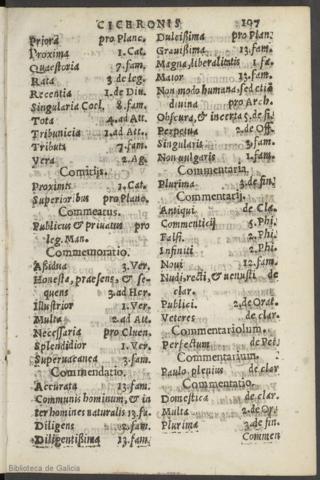 CICERONIS 197
Priora pro Planc.
Proxima 1. Cat.
Quaestoria 7. fam.
Rata 3 de leg.
Recentia 1. de Diu.
Singularia Coel, 8. fam.
Tota 4. ad Att.
Tribunicia 1. ad Att.
Tributa 7. fam.
Vera 2. Ag.
Comitijs.
Proximis 1. Cat.
Superioribus pro Planc.
Commeatus.
Publicus & priuatus pro
leg. Man.
Commemoratio.
Aßidua 3. Ver.
Honesta, praesens, & se-
quens 3. ad Her.
Illustrior 1. Ver.
Multa 2. ad Att.
Necessaria pro Cluen.
Splendidior 1. Ver.
Superuacanea 3. fam.
Commendatio.
Accurata 13. fam.
Communis hominum, & in
ter homines naturalis 13. fa.
Diligens 2. fam.
Diligentißima 13. fam.
Dulcißima pro Plan.
Grauißima 13. fam.
Magna, liberalitatis 1. fa.
Maior 13. fam.
Non modo humana, sed etiã
diuina pro Arch.
Obscura, & incerta 5. de fi.
Perpetua 2. de Off.
Singularis 3. fam.
Non vulgaris 1. fam.
Commentaria.
Plurima 3. de fin.
Commentarij.
Antiqui de Cla.
Commenticij 5. Phi.
Falsi. 2. Phi.
Infiniti 2. Phi.
Noui 12. fam.
Nudi, recti, & venusti, de
clar.
Publici. 2. de Orat.
Veteres de clar.
Commentariolum.
Perfectum de Pet.
Commentarium.
Paulo plenius de clar
Commentatio.
Domestica de clar.
Multa 2. de Or.
Plurima 3. de fin.
Commen
Biblioteca de Galicia